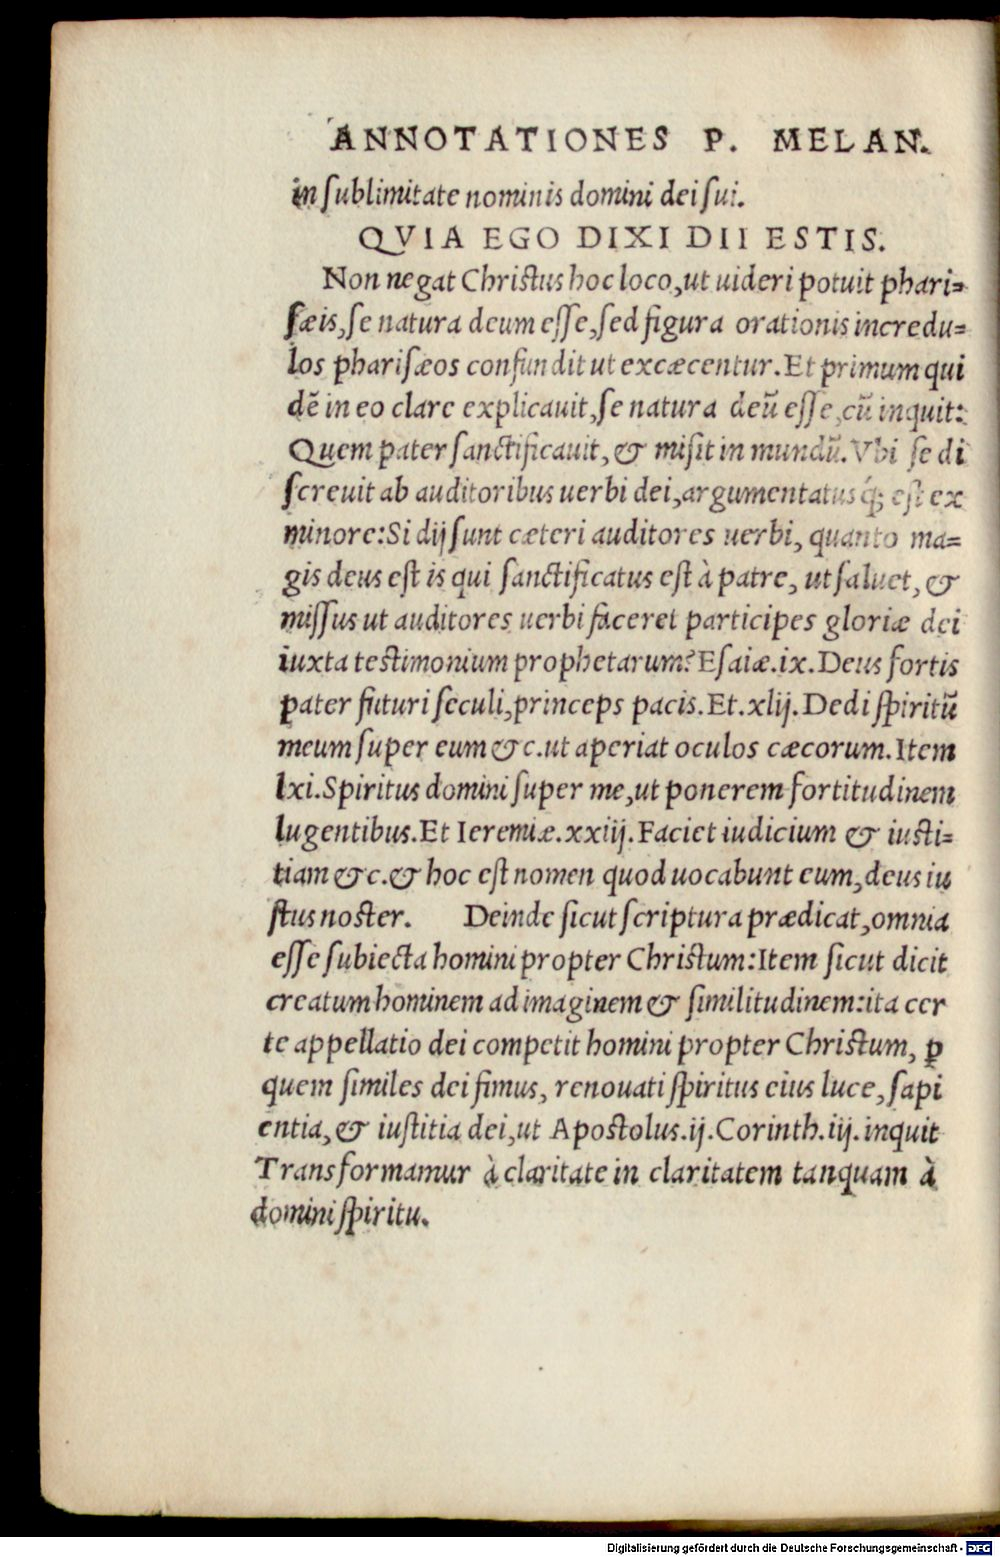 ANNOTATIONES P. MELAN.
in ſublimitate nominis domini dei ſui.
QVIA EGO DIXI DII ESTIS.
Non negat Chriſtus hoc loco, ut uideri potuit phari=
ſæis, ſe natura deum eſſe, ſed figura orationis incredu=
los phariſæos confundit ut excæcentur. Et primum qui
dē in eo clare explicauit, ſe natura deū eſſe, cū inquit:
Quem pater ſanctificauit, & miſit in mundū. Vbi ſe di
ſcreuit ab auditoribus uerbi dei, argumentatus q́; eſt ex
minore: Si dij ſunt cæteri auditores uerbi, quanto ma=
gis deus eſt is qui ſanctificatus eſt à patre, ut ſaluet, &
miſſus ut auditores uerbi faceret participes gloriæ dei
iuxta teſtimonium prophetarum? Eſaiæ. ix. Deus fortis
pater futuri ſeculi, princeps pacis. Et. xlij. Dedi ſpiritū
meum ſuper eum &c. ut aperiat oculos cæcorum. Item
lxi. Spiritus domini ſuper me, ut ponerem fortitudinem
lugentibus. Et Ieremiæ. xxiij. Faciet iudicium & iuſti=
tiam &c. & hoc eſt nomen quod uocabunt eum, deus iu
ſtus noſter. Deinde ſicut ſcriptura prædicat, omnia
eſſe ſubiecta homini propter Chriſtum: Item ſicut dicit
creatum hominem ad imaginem & ſimilitudinem: ita cer
te appellatio dei competit homini propter Chriſtum, ꝑ
quem ſimiles dei fimus, renouati ſpiritus eius luce, ſapi
entia, & iuſtitia dei, ut Apoſtolus. ij. Corinth. iij. inquit
Transformamur à claritate in claritatem tanquam à
domini ſpiritu.
Digitalisierung gefördert durch die Deutsche Forschungsgemeinschaft - DFG